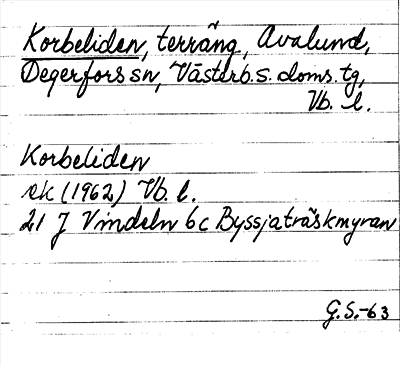 Korbeliden, terräng, Avalund,
Degerfors sn, Västerb. s. doms. tg,
Vb. l.
Korbeliden
ek (1962) Vb. l.
21 J Vindeln 6c Byssjaträskmyran
G.S.-63